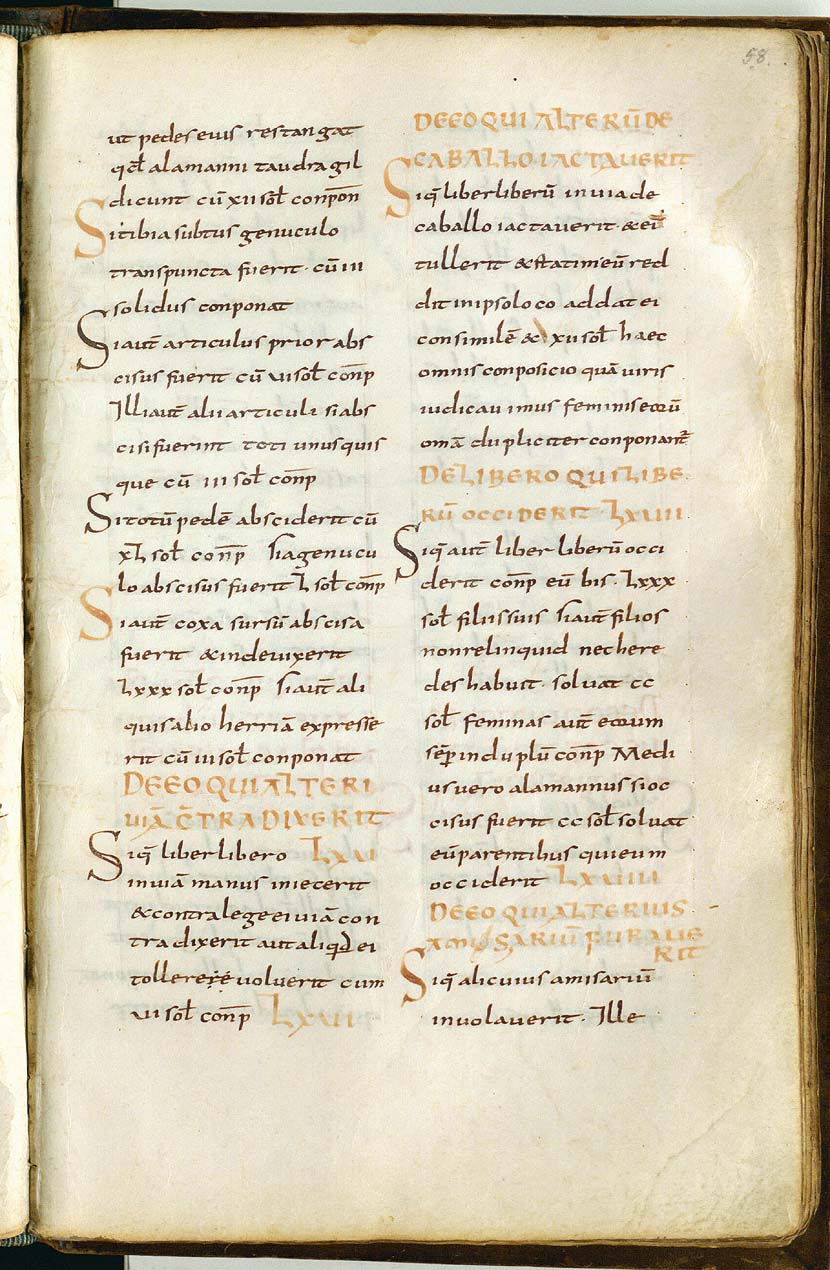 58.
ut pedes eius restangat
qđ alamanni taudragil
dicunt cū xii sol̄ conpōn
Si tibia subtus genuculo
transpuncta fuerit · cū iii
solidus conponat
Si aūt articulus prior abs
cisus fuerit cū vi sol̄ con̄p
Illi aūt alii articuli si abs
cisi fuerint toti unusquis
que cū iii sol̄ con̄p
Si totū pedē absciderit cū
xl sol̄ con̄p Si a genucu
lo abscisus fuerit l sol̄ con̄p
Si aūt coxa sursū abscisa
fuerit & inde vixerit
lxxx sol̄ con̄p Si aūt ali
quis alio herriā expresse
rit cū iii sol̄ conponat
DE EO QUI ALTERI
UIĀ C̄TRADIXERIT
Siq̄ liber libero LXVI
in uiā manus iniecerit
& contra lege ei uiā con
tradixerit aut aliqd ei
tollerere voluerit cum
vi sol̄ con̄p LXVII
DE EO QUI ALTERŪ DE
CABALLO IACTAVERIT
Siq̄ liber liberū in via de
caballo iactaverit · & eī
tullerit & statim eū red
dit in ipso loco addat ei
consimilē & xii sol̄ haec
omnis conposicio quā viris
iudicavimus feminis eorū
omā dupliciter conponant̄
DE LIBERO QUI LIBE
RŪ OCCIDERIT LXVIII
Siq̄ aūt liber liberū occi
derit con̄p eū bis · lxxx
sol̄ filiis suis Si aūt filios
non relinquid nec here
des habuit · solvat cc
sol̄ feminas aūt eorum
sēp in duplū con̄p Medi
us vero alamannus si oc
cisus fuerit cc sol̄ solvat
eū parentibus qui eum
occiderit LXVIIII
DE EO QUI ALTERIUS
AMISSARIŪ FURAVE
RIT
Siq̄ alicuius amisariū
involaverit · Ille